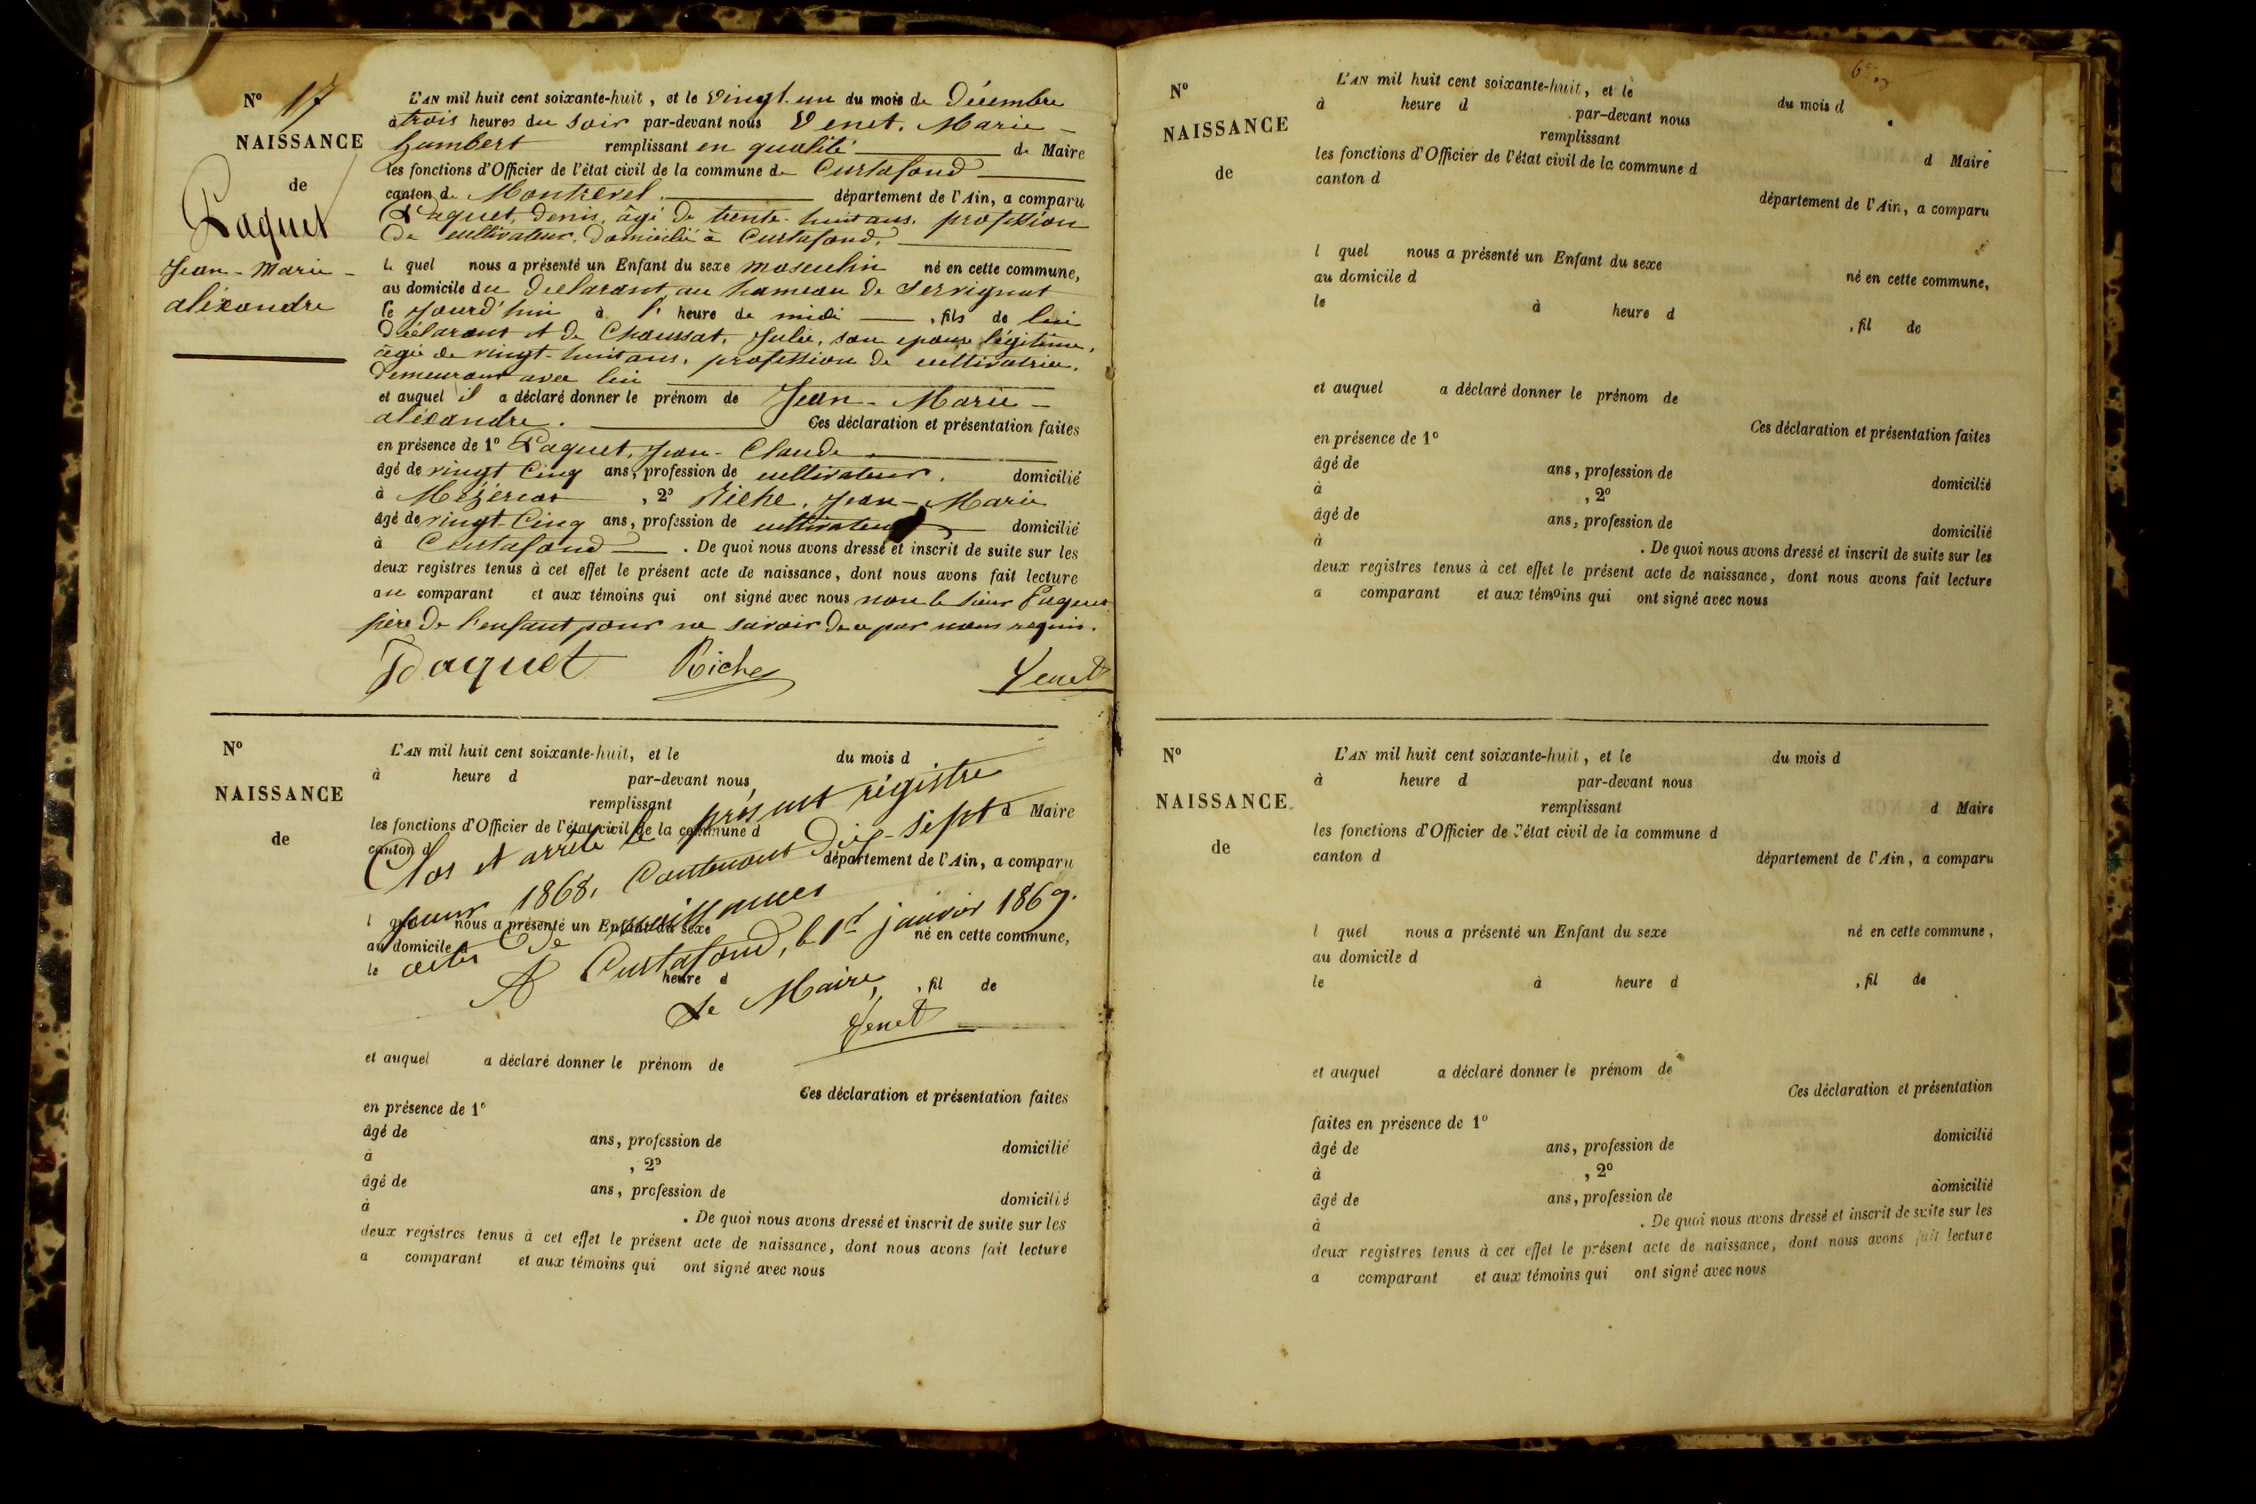 N° 17
NAISSANCE
de
Paquet
Jean-Marie-
aléxandre
L'AN mil huit cent soixante-huit, et le vingt-un du mois de Décembre
à trois heures du soir par-devant nous Venet, Marie-
humbert remplissant en qualité de Maire
les fonctions d'Officier de l'état civil de la commune de Curtafond
canton de Montrevel département de l'Ain, a comparu
Paquet, denis, âgé de trente-huit ans, profession
de cultivateur, domicilié à Curtafond,
le quel nous a présenté un Enfant du sexe masculin né en cette commune,
au domicile du déclarant au hameau de Servignat
le jourd'hui à l' heure de midi, fils de lui
déclarant et de Chaussat, Julie, son épouse légitime,
âgée de vingt-huit ans, profession de cultivatrice,
demeurant avec lui
et auquel il a déclaré donner le prénom de Jean-Marie-
aléxandre. Ces déclaration et présentation faites
en présence de 1° Paquet, Jean-Claude
âgé de vingt Cinq ans, profession de cultivateur, domicilié
à Mézériat, 2° Riche, Jean-Marie
âgé de vingt-Cinq ans, profession de cultivateur domicilié
à Curtafond. De quoi nous avons dressé et inscrit de suite sur les
deux registres tenus à cet effet le présent acte de naissance, dont nous avons fait lecture
au comparant et aux témoins qui ont signé avec nous non le sieur Paquet
père de l'enfant pour ne savoir de ce par nous requis.
Paquet Riche Venet
N°
NAISSANCE
de
L'AN mil huit cent soixante-huit, et le du mois d
à heure d par-devant nous
remplissant d Maire
les fonctions d'Officier de l'état civil de la commune d
canton d département de l'Ain, a comparu
Clos et arrêté le présent régistre
pour 1868, Contenant Dix-sept
actes de naissances
A Curtafond, le 1er janvier 1869.
Le Maire,
Venet
l quel nous a présenté un Enfant du sexe né en cette commune,
au domicile d
le heure d , fil de
et auquel a déclaré donner le prénom de
Ces déclaration et présentation faites
en présence de 1°
âgé de ans, profession de domicilié
à , 2°
âgé de ans, profession de domicilié
à . De quoi nous avons dressé et inscrit de suite sur les
deux registres tenus à cet effet le présent acte de naissance, dont nous avons fait lecture
a comparant et aux témoins qui ont signé avec nous
N°
NAISSANCE
de
L'AN mil huit cent soixante-huit, et le du mois d
à heure d par-devant nous
remplissant d Maire
les fonctions d'Officier de l'état civil de la commune d
canton d département de l'Ain, a comparu
l quel nous a présenté un Enfant du sexe né en cette commune,
au domicile d
le à heure d , fil de
et auquel a déclaré donner le prénom de
Ces déclaration et présentation faites
en présence de 1°
âgé de ans, profession de domicilié
à , 2°
âgé de ans, profession de domicilié
à . De quoi nous avons dressé et inscrit de suite sur les
deux registres tenus à cet effet le présent acte de naissance, dont nous avons fait lecture
a comparant et aux témoins qui ont signé avec nous
N°
NAISSANCE
de
L'AN mil huit cent soixante-huit, et le du mois d
à heure d par-devant nous
remplissant d Maire
les fonctions d'Officier de l'état civil de la commune d
canton d département de l'Ain, a comparu
l quel nous a présenté un Enfant du sexe né en cette commune,
au domicile d
le à heure d , fil de
et auquel a déclaré donner le prénom de
Ces déclaration et présentation
faites en présence de 1°
âgé de ans, profession de domicilié
à , 2°
âgé de ans, profession de domicilié
à . De quoi nous avons dressé et inscrit de suite sur les
deux registres tenus à cet effet le présent acte de naissance, dont nous avons fait lecture
a comparant et aux témoins qui ont signé avec nous